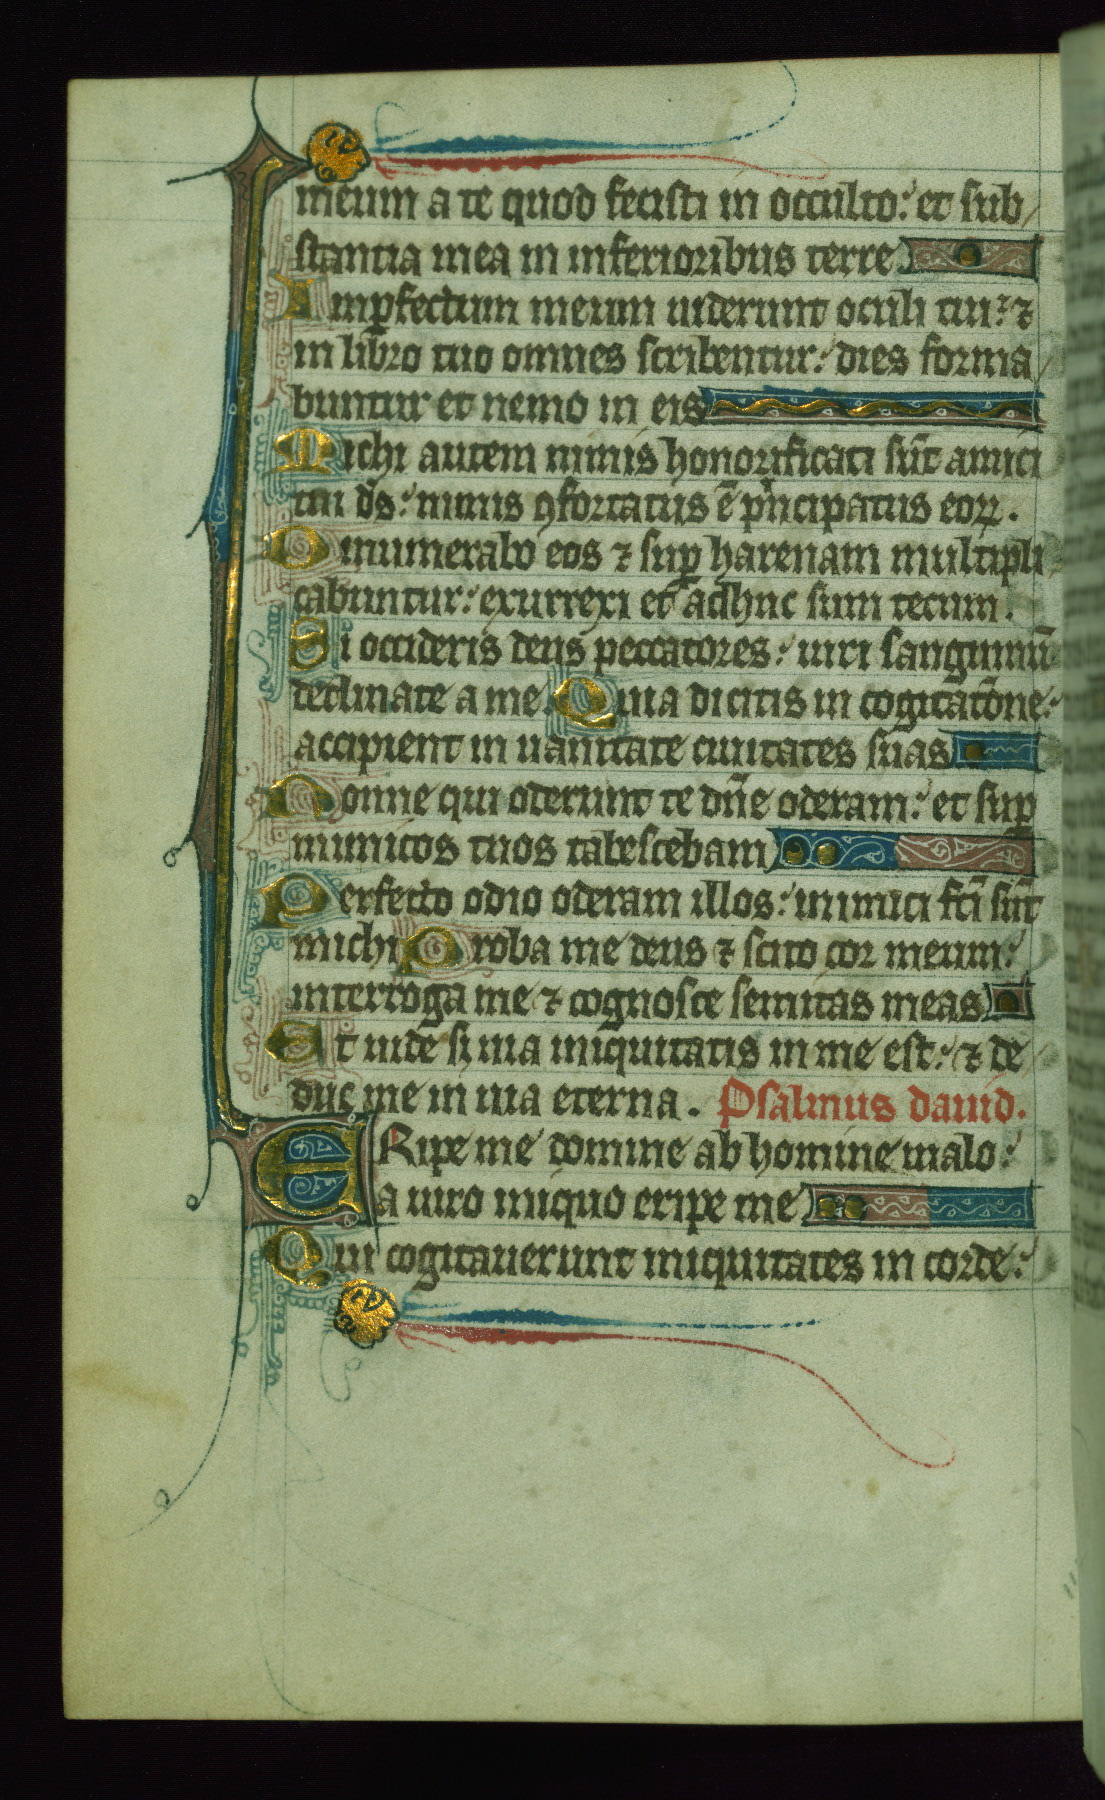 meum a te quod fecisti in occulto: et sub
stantia mea in inferioribus terre
Inp̱fectum meum uiderunt oculi tui: ⁊
in libro tuo omnes scribentur: dies forma
buntur et nemo in eis
Michi autem nimis honorificati sūt amici
tui ds̄: nimis ꝯfortatus ē pͥncipatus eoꝝ.
Dinumerabo eos ⁊ suꝑ harenam multipli
cabuntur: exurrexi et adhuc sum tecum.
Si occideris deus peccatores: uiri sanguinū
declinate a me Quia dicitis in cogitatōne:
accipient in uanitate ciuitates suas
Nonne qui oderunt te dn̄e oderam: et suꝑ
inimicos tuos tabescebam
Perfecto odio oderam illos: inimici fc̄i sūt
michi Proba me deus ⁊ scito cor meum:
interroga me ⁊ cognosce semitas meas
Et uide si uia iniquitatis in me est: ⁊ de
duc me in uia eterna. Psalmus dauid.
ERipe me domine ab homine malo:
a uiro iniquo eripe me
Qui cogitauerunt iniquitates in corde: